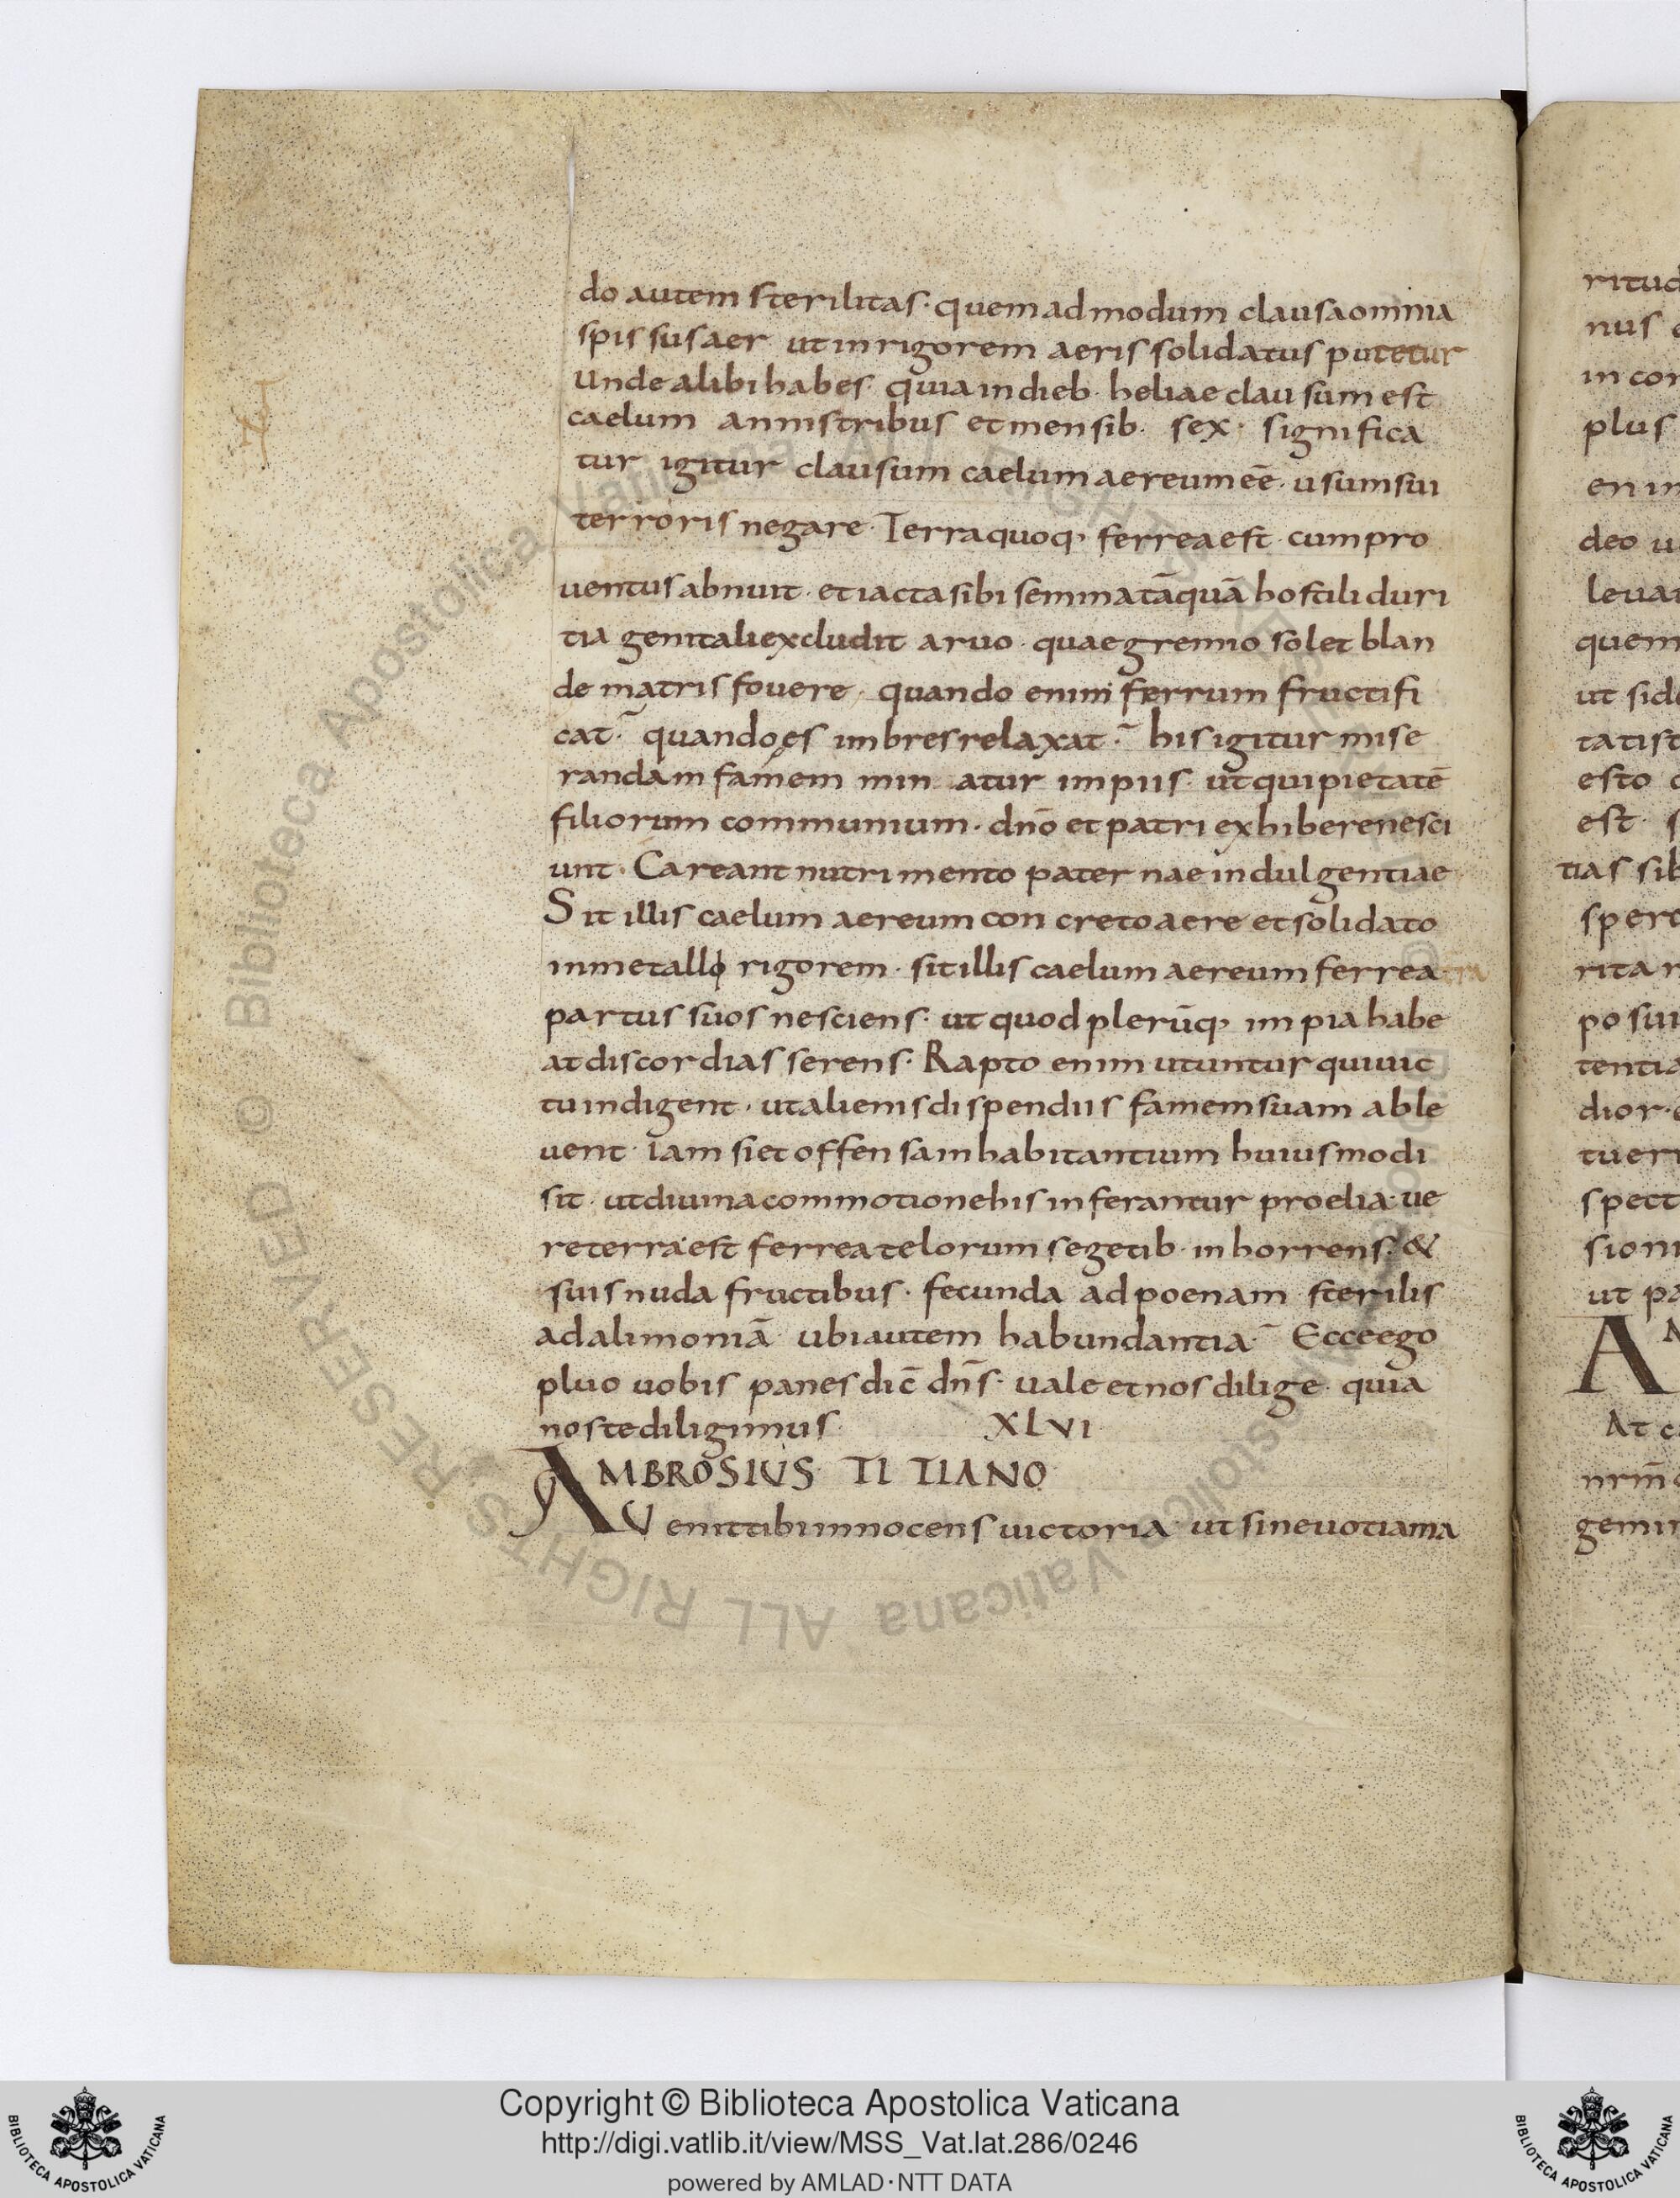 do autem sterilitas· quem ad modum clausa omnia
spissus aer ut in rigorem aeris solidatus putetur
unde alibi habes· quia in dieb· heliae clausum est
caelum annis tribus et mensib· sex· significa
tur igitur clausum caelum aereum eē· usum sui
terroris negare· Terra quoq, ferrea est· cum pro
uentus abnuit· et iacta sibi semina tāquā hostili duri
tia genitali excludit aruo· quae gremio solet blan
de matris fouere· quando enim ferrum fructifi
cat· quando es imbres relaxat· his igitur mise
randam famem min atur impiis· ut qui pietatē
filiorum communium· dnō et patri exhibere nesci
unt· Careant nutrimento paternae indulgentiae·
Sit illis caelum aereum concreto aere et solidato
in metallo rigorem· sit illis caelum aereum ferrea tra
partus suos nesciens· ut quod plerūq, impia habe
at discordias serens· Rapto enim utuntur qui uic
tu indigent· ut alienis dispendiis famem suam able
uent· iam si et offensam habitantium huius modi
sit· ut diuina commotione his inferantur proelia· ue
re terra est ferrea telorum segetib· inhorrens· &
suis nuda fructibus· fecunda ad poenam sterilis
ad alimoniā· ubi autem habundantia· Ecce ego
pluo uobis panes dic̄ dn̄s· uale et nos dilige· quia
nos te diligimus· XLVI
AMBROSIUS TITIANO
Uenit tibi innocens uictoria· ut sine uoti ama
ritud
nus
in con
plus
en im
deo u
leuar
quem
ut side
tatist
esto
est· s
tias sib
spert
rita n
posui
tentia
dior·
tuer
spect
sion
ut pa
A
At c
nrm̄
gemin
RESERVED © Biblioteca Apostolica Vaticana ALL RIGHTS
Copyright © Biblioteca Apostolica Vaticana
http://digi.vatlib.it/view/MSS_Vat.lat.286/0246
powered by AMLAD·NTT DATA
BIBLIOTECA APOSTOLICA VATICANA
BIBLIOTECA APOSTOLICA VATICANA